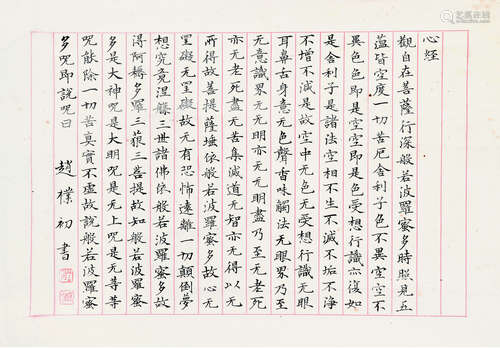 心經
觀自在菩薩行深般若波羅蜜多時照見五
蘊皆空度一切苦厄舍利子色不異空空不
異色色即是空空即是色受想行識亦復如
是舍利子是諸法空相不生不滅不垢不淨
不增不減是故空中无色无受想行識无眼
耳鼻舌身意无色聲香味觸法无眼界乃至
无意識界无无明亦无无明盡乃至无老死
亦无老死盡无苦集滅道无智亦无得以无
所得故菩提薩埵依般若波羅蜜多故心无
罣礙无罣礙故无有恐怖遠離一切顛倒夢
想究竟涅槃三世諸佛依般若波羅蜜多故
得阿耨多羅三藐三菩提故知般若波羅蜜
多是大神呪是大明呪是无上呪是无等等
呪能除一切苦真實不虛故說般若波羅蜜
多呪即說呪曰
趙樸初書